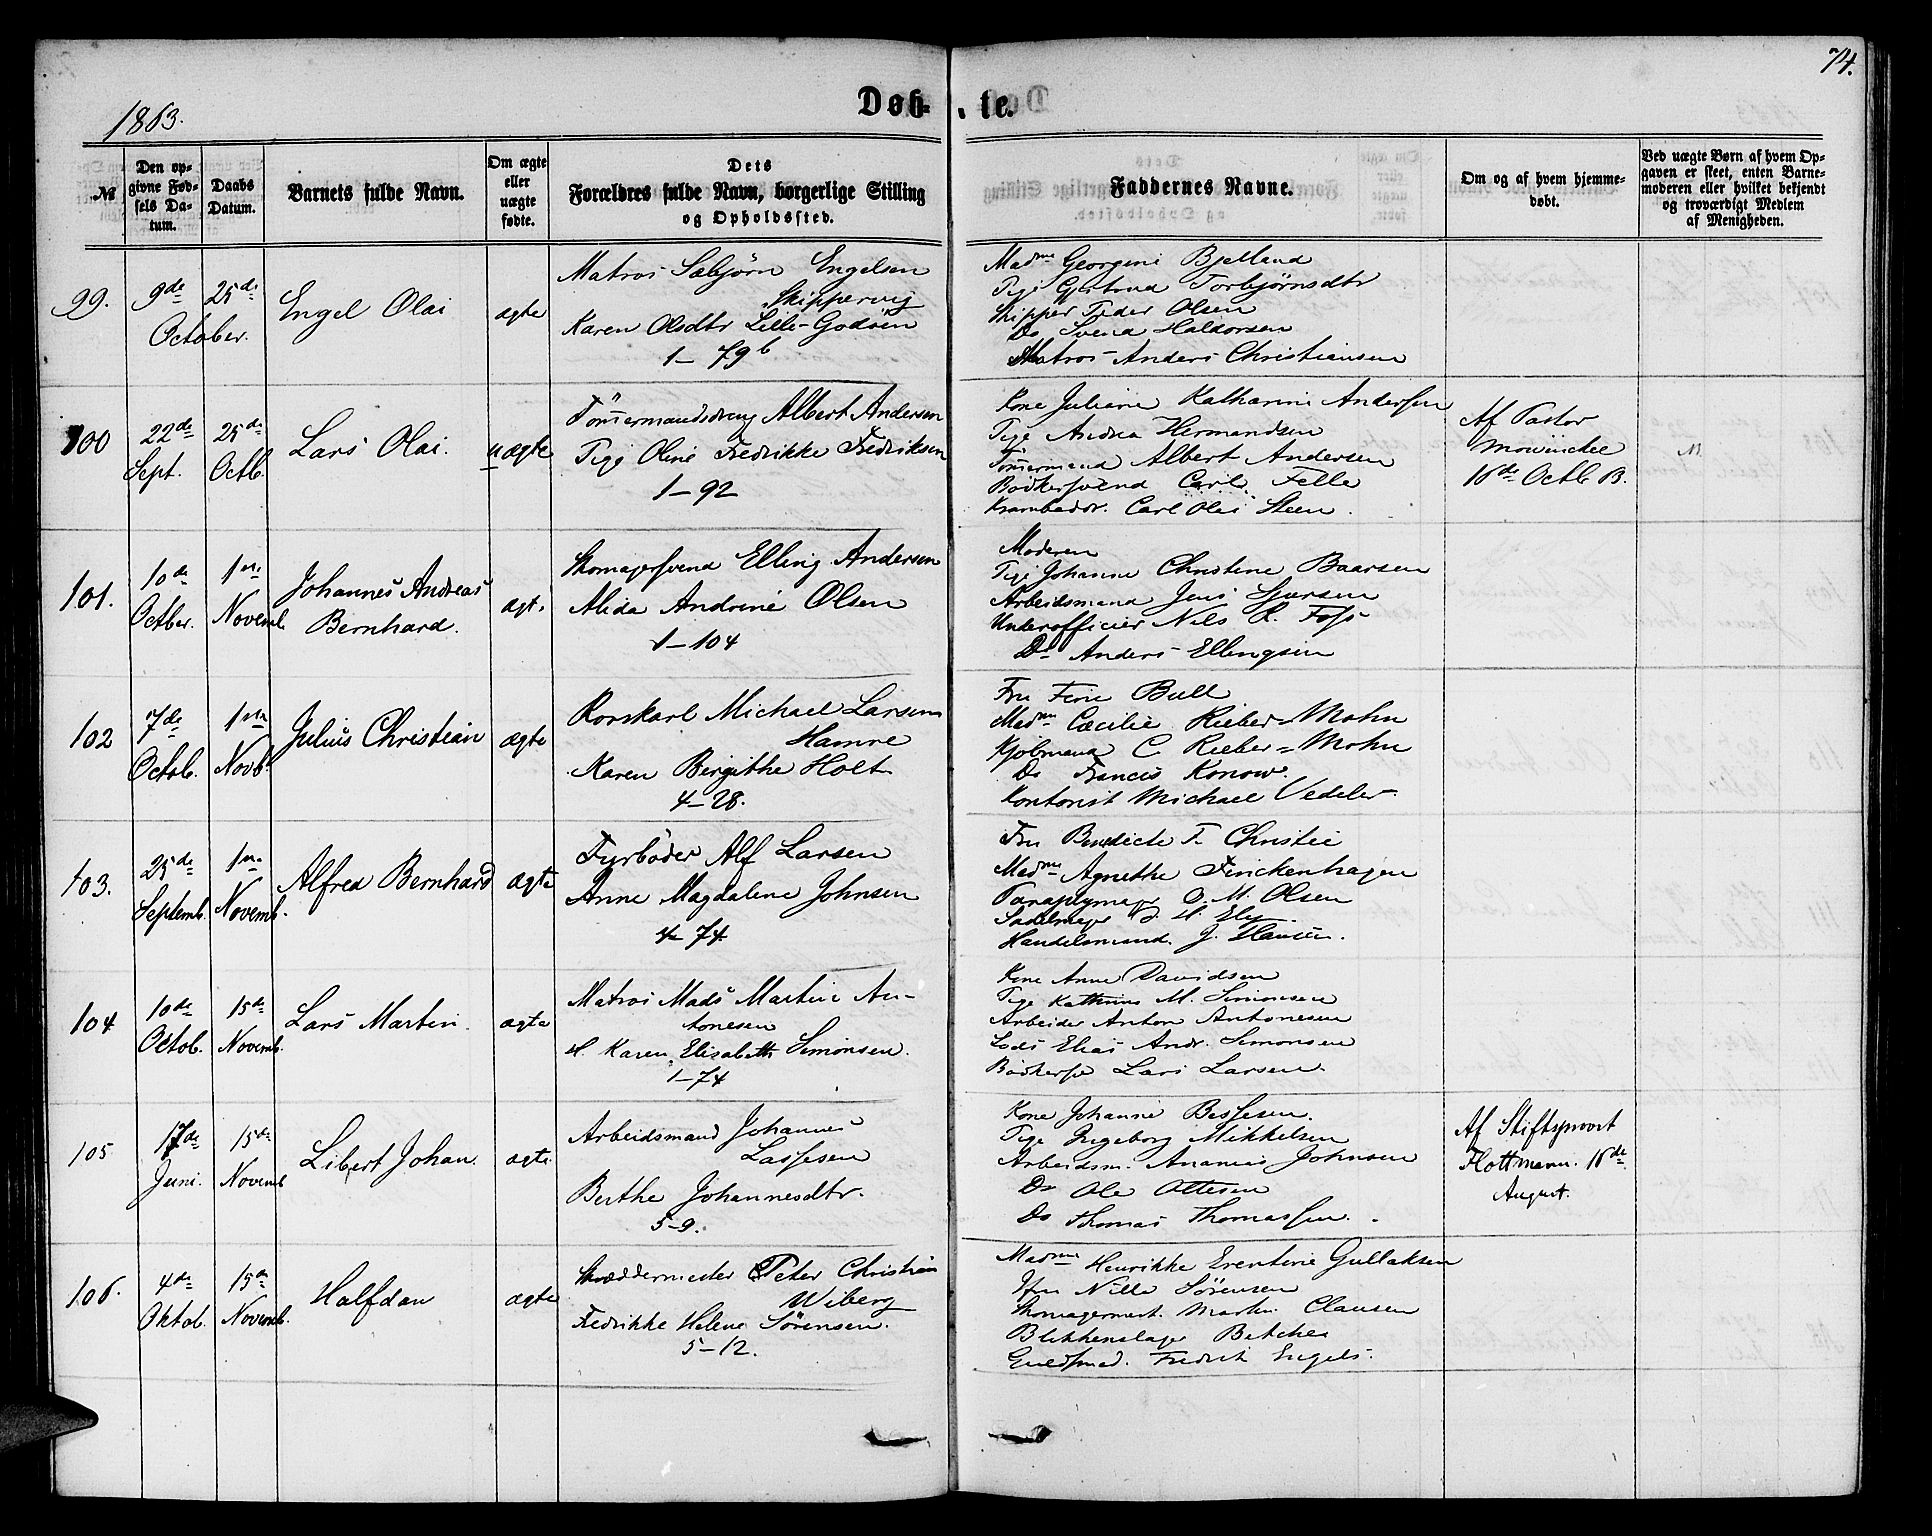 74.
1863.
Døb- te.
№
Den op-
givne Fød-
sels Da-
tum.
Daabs
Datum.
Barnets fulde Navn.
Om ægte
eller
uægte
fødte.
Dets
Forældres fulde Navn, borgerlige Stilling
og Opholdssted.
Faddernes Navne.
Om og af hvem hjemme-
døbt.
Ved uægte Børn af hvem Op-
gaven er skeet, enten Barne-
moderen eller hvilket bekjendt
og troværdigt Medlem
af Menigheden.
99.
9de
October.
25de
Engel Olai
ægte
Matros Sæbjørn Engelsen
Skippervig
Karen Olsdtr Lille-Godøen
1-79b
Madme Georgine Bjelland
Pige Gjertrud Torbjørnsdtr
Skipper Peder Olsen
Do Svend Haldorsen
Matros Anders Christiansen
100
22de
Sept.
25de
Octb.
Lars Olai.
uægte
Tømmermandsdreng Albert Andersen
Pige Oline Fredrikke Fredriksen
1-92
Kone Juliane Katharine Andersen
Pige Andrea Hermandsen
Tømermand Albert Andersen
Bødkersvend Carl Felle
Kramboddr. Carl Olai Steen.
Af Pastor
Mowinckel
16de Octb. B.
M.
101.
10de
Octber.
1ste
Novemb.
Johannes Andreas
Bernhard.
ægt.
Skomagersvend Elling Andersen
Alida Andrine Olsen
1-104
Moderen
Pige Johanne Christine Baarsen
Arbeidsmand Jens Sjursen
Underofficier Nils R. Foss
Do Anders Ellingsen
102
7de
Octob.
1ste
Novb.
Julius Christian
ægte
Rorskarl Michael Larsen
Hamre
Karen Birgithe Holt
4-28.
Fru Fine Bull
Madme Cæcilie Rieber-Mohn
Kjøbmand C. Rieber-Mohn
Do Francis Konow.
Kontorist Michael Vedeler.
103.
25de
Septemb.
1ste
Novemb.
Alfred Bernhard
ægte
Fyrbøder Alf Larsen
Anne Magdalene Johnsen
4-74.
Fru Benedicte F. Christie
Madme Agnethe Finckenhagen
Paraplymager O. M. Olsen
Sadelmager
Handelsmand. J. Hansen.
104
10de
Octob.
15de
Novemb.
Lars Martin.
ægte
Matros Mads Martin An-
tonesen
H. Karen Elisabeth Simonsen.
1-74
Kone Anne Davidsen
Pige Kathrine M. Simonsen
Arbeider Anton Antonesen
Lods Elias Andr. Simonsen
Bødkersv Lars Larsen.
105
17de
Juni.
15de
Novemb
Libert Johan.
ægte.
Arbeidsmand Johannes
Lassesen
Berthe Johannesdtr.
5-9.
Kone Johanne Bessesen.
Pige Ingeborg Mikkelsen
Arbeidsm. Ananias Johnsen
Do Ole Ottesen
Do Thomas Thomassen.
Af Stiftsprovst
Flottmann. 16de
August.
106.
4de
Oktob.
15de
Novemb.
Halfdan
ægte
Skræddermester Peter Christian
Wiberg
Fredrikke Helene Sørensen.
5-12.
Madme Henrikke Erentine Gullaksen
Jfru Nille Sørensen
Skomagermest. Martin Clausen
Blikkenslager Betcher
Guldsmed. Fredrik Engels.